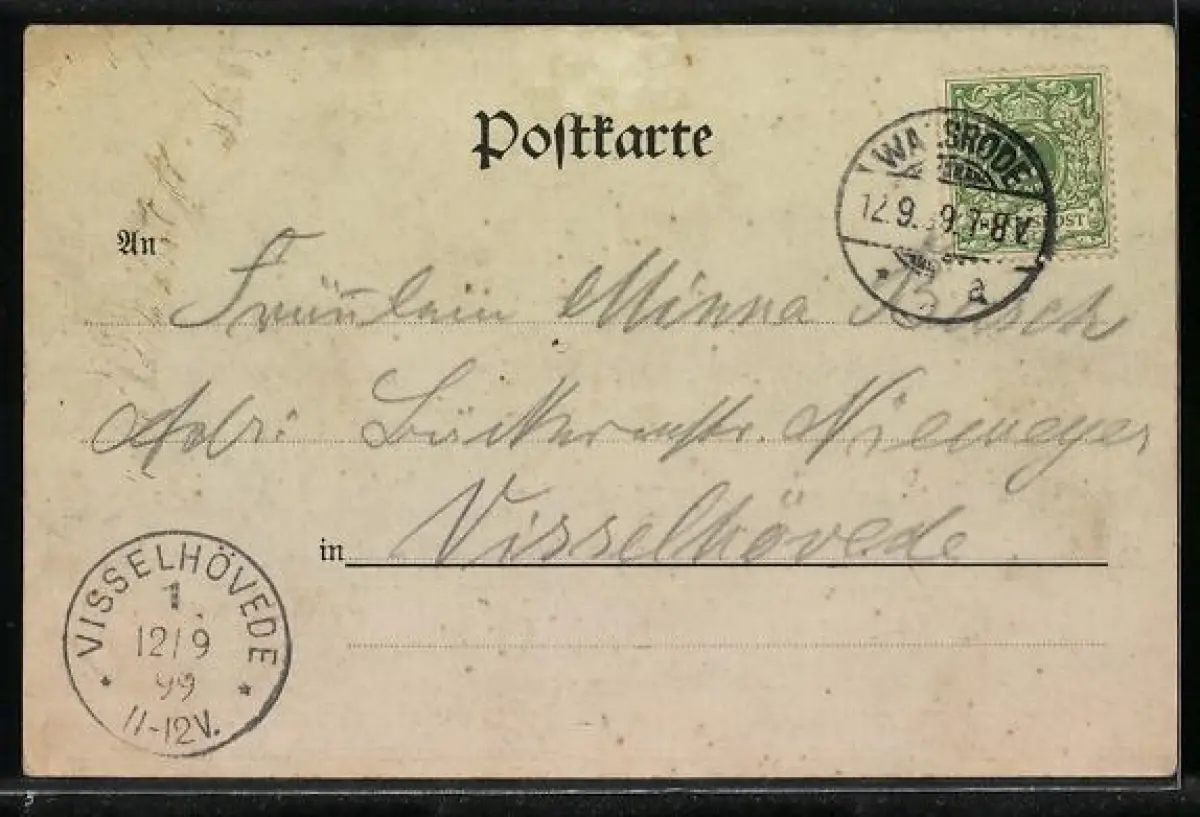 Postkarte
WALSRODE
12.9.99. 7-8V.
* a
POST
An
Fräulein Minna Busch
Adr: Bäckermstr. Niemeyer
in Visselhövede.
VISSELHÖVEDE
1.
12/9
99
* *
11-12V.